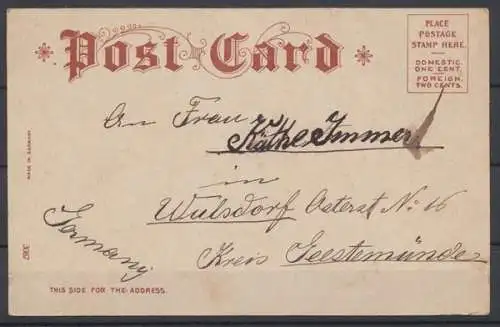 Post Card
PLACE
POSTAGE
STAMP HERE.
DOMESTIC.
ONE CENT.
FOREIGN,
TWO CENTS.
An Frau
Käthe Immer
in
Wulsdorf Osterst No 16
Kreis Geestemünde
Germany
MADE IN GERMANY
THIS SIDE FOR THE ADDRESS.